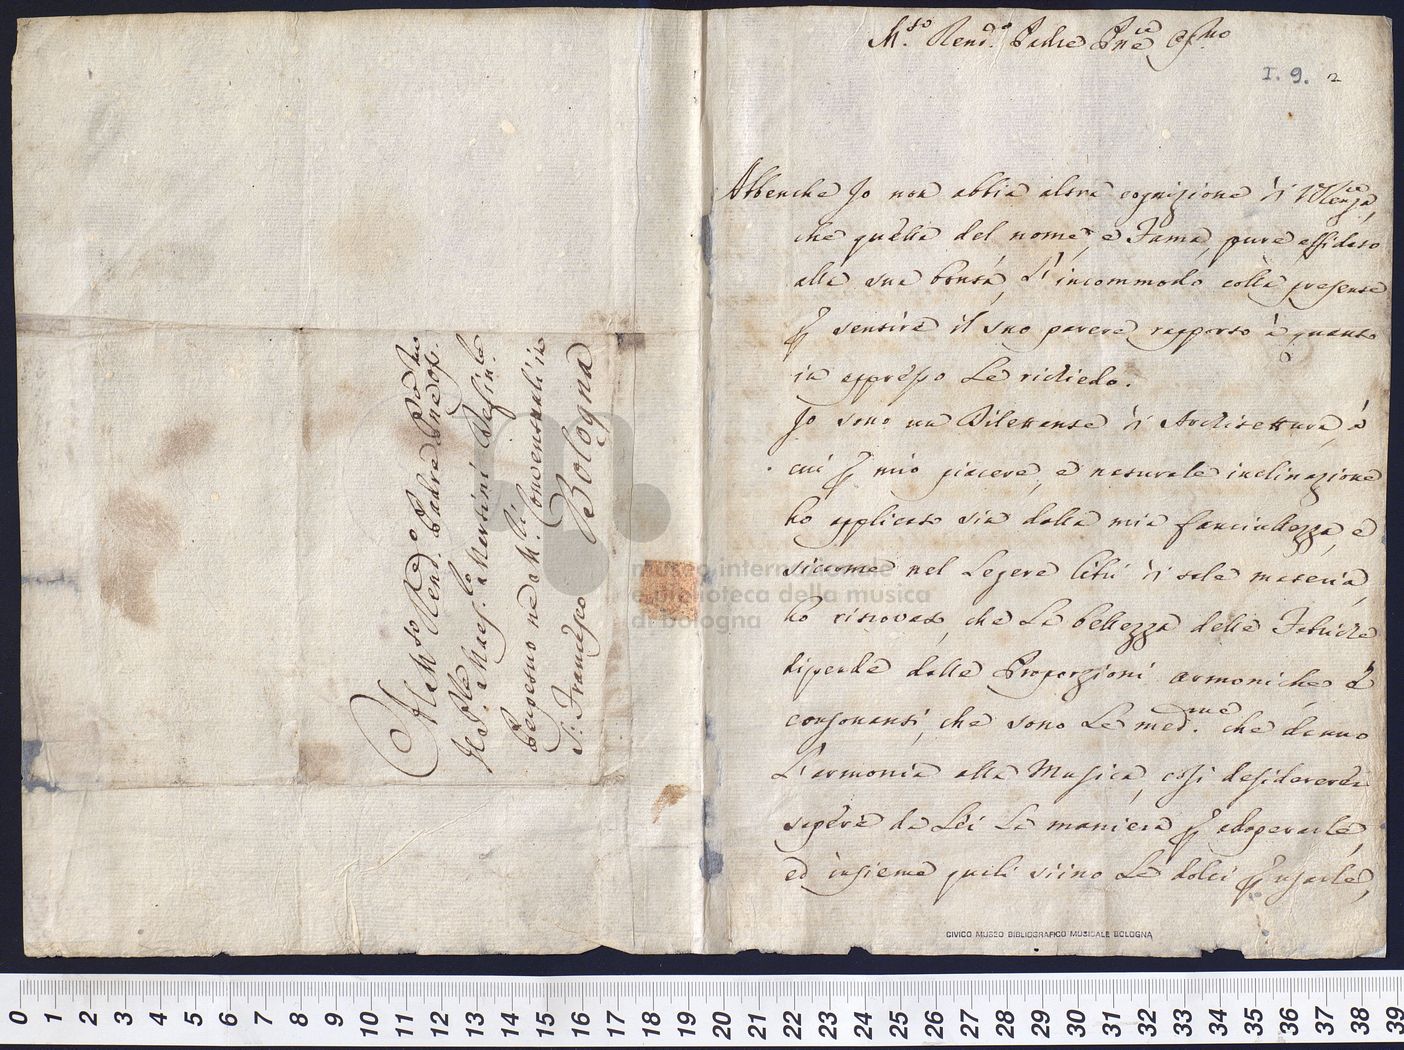 Al M.to Rev.do Pad.e Pad.e Ss.mo
Il P.le Maes.o Martini Defin.le
Capesno ne M.li Conventuali in
S: Francesco Bologna
M.to Rend.o Padre Pne
I. 9. 2
Abbenche Jo non abbia altra cognizione di
che quella del nome, e Fama, pure affidato
alla sua bontà, L'incommodo colla presente
sentire il suo parere rapporto à quanto
in appresso Le richiedo.
Jo sono un Dilettante di Architettura, à
cui mio piacere, e naturale inclinazione
ho applicato sia dalla mia fanciullezza, e
siccome nel Legere libri di tale materia,
ho ritrovato, che La bellezza delle Fabriche
dipende dalle Proporzioni armoniche è
consonanti, che sono Le med.me che danno
L'armonia alla Musica, cosi desidererei
sapere da Lei La maniera adoperarle,
ed insieme quali siino Le dolci usarle,
CIVICO MUSEO BIBLIOGRAFICO MUSICALE BOLOGNA
museo internazionale
e biblioteca della musica
di bologna
0 1 2 3 4 5 6 7 8 9 10 11 12 13 14 15 16 17 18 19 20 21 22 23 24 25 26 27 28 29 30 31 32 33 34 35 36 37 38 39